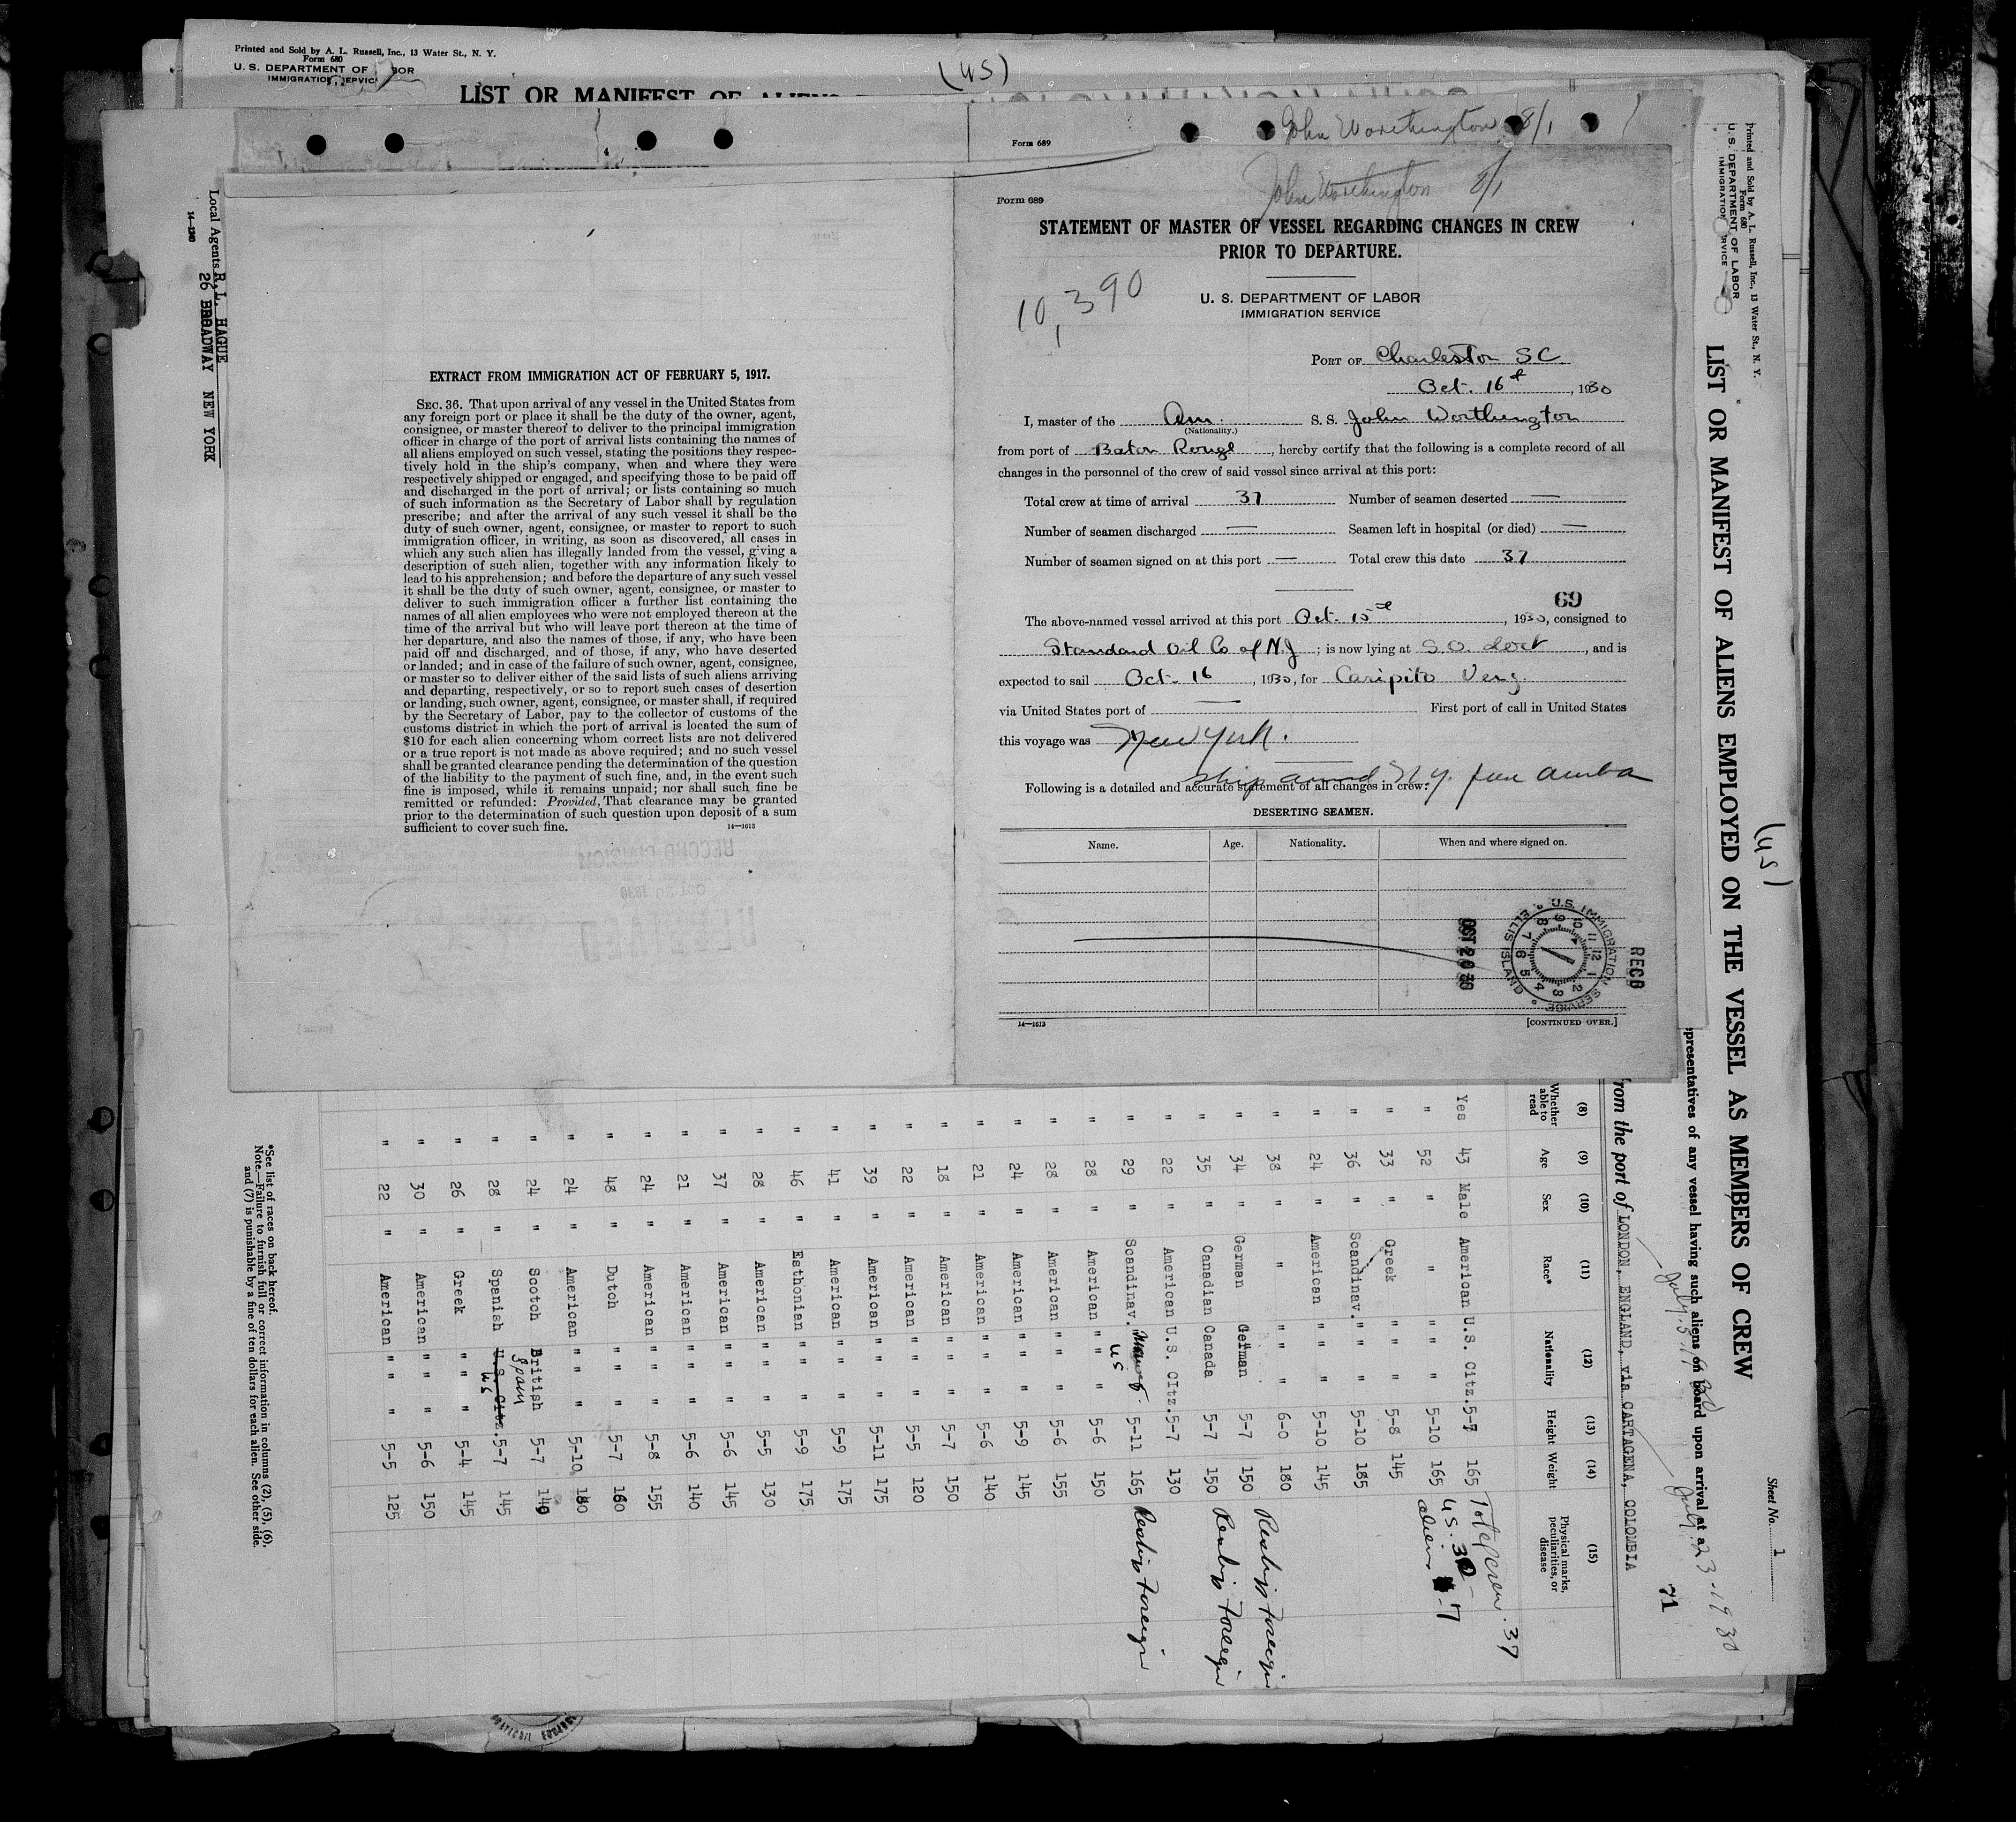 Printed and Sold by A. L. Russell, Inc., 13 Water St., N. Y.
Form 680
U. S. DEPARTMENT OF LABOR
IMMIGRATION SERVICE
(US)
LIST OR MANIFEST OF ALIENS
Form 689
John Worthington 8/1
Local Agents R. L. HAGUE
26 BROADWAY NEW YORK
14—1240
EXTRACT FROM IMMIGRATION ACT OF FEBRUARY 5, 1917.
SEC. 36. That upon arrival of any vessel in the United States from
any foreign port or place it shall be the duty of the owner, agent,
consignee, or master thereof to deliver to the principal immigration
officer in charge of the port of arrival lists containing the names of
all aliens employed on such vessel, stating the positions they respec-
tively hold in the ship's company, when and where they were
respectively shipped or engaged, and specifying those to be paid off
and discharged in the port of arrival; or lists containing so much
of such information as the Secretary of Labor shall by regulation
prescribe; and after the arrival of any such vessel it shall be the
duty of such owner, agent, consignee, or master to report to such
immigration officer, in writing, as soon as discovered, all cases in
which any such alien has illegally landed from the vessel, giving a
description of such alien, together with any information likely to
lead to his apprehension; and before the departure of any such vessel
it shall be the duty of such owner, agent, consignee, or master to
deliver to such immigration officer a further list containing the
names of all alien employees who were not employed thereon at the
time of the arrival but who will leave port thereon at the time of
her departure, and also the names of those, if any, who have been
paid off and discharged, and of those, if any, who have deserted
or landed; and in case of the failure of such owner, agent, consignee,
or master so to deliver either of the said lists of such aliens arriving
and departing, respectively, or so to report such cases of desertion
or landing, such owner, agent, consignee, or master shall, if required
by the Secretary of Labor, pay to the collector of customs of the
customs district in which the port of arrival is located the sum of
$10 for each alien concerning whom correct lists are not delivered
or a true report is not made as above required; and no such vessel
shall be granted clearance pending the determination of the question
of the liability to the payment of such fine, and, in the event such
fine is imposed, while it remains unpaid; nor shall such fine be
remitted or refunded: Provided, That clearance may be granted
prior to the determination of such question upon deposit of a sum
sufficient to cover such fine.
14—1613
John Worthington 8/1
Form 689
STATEMENT OF MASTER OF VESSEL REGARDING CHANGES IN CREW
PRIOR TO DEPARTURE.
10,390
U. S. DEPARTMENT OF LABOR
IMMIGRATION SERVICE
PORT OF Charleston SC
Oct. 16th, 1930
I, master of the Am. S. S. John Worthington
(Nationality.)
from port of Baton Rouge, hereby certify that the following is a complete record of all
changes in the personnel of the crew of said vessel since arrival at this port:
Total crew at time of arrival 37 Number of seamen deserted —
Number of seamen discharged — Seamen left in hospital (or died) —
Number of seamen signed on at this port — Total crew this date 37
69
The above-named vessel arrived at this port Oct. 15th, 1930, consigned to
Standard Oil Co of N.J; is now lying at S.O. Dock, and is
expected to sail Oct. 16, 1930, for Caripito Venz.
via United States port of — First port of call in United States
this voyage was New York.
ship arrived N.Y. from Aruba
Following is a detailed and accurate statement of all changes in crew:
DESERTING SEAMEN.
Name. Age. Nationality. When and where signed on.
OCT 20 30
U.S. IMMIGRATION SERVICE ELLIS ISLAND
RECD
14—1613
[CONTINUED OVER.]
Printed and Sold by A. L. Russell, Inc., 13 Water St., N. Y.
Form 680
U. S. DEPARTMENT OF LABOR
IMMIGRATION SERVICE
(US)
Sheet No. 1
LIST OR MANIFEST OF ALIENS EMPLOYED ON THE VESSEL AS MEMBERS OF CREW
presentatives of any vessel having such aliens on board upon arrival at a
July 5, 1930 July 23-1930
71
from the port of LONDON, ENGLAND, via CARTAGENA, COLOMBIA
(8) (9) (10) (11) (12) (13) (14) (15)
Whether able to read Age Sex Race* Nationality Height Weight Physical marks, peculiarities, or disease
Total crew. 37
U.S. 30
aliens 7
Yes 43 Male American U.S. Citz. 5-7 165
" 52 " " " " 5-10 165
" 33 " Greek " " 5-8 145
" 36 " Scandinav. " " 5-10 185
" 24 " American " " 5-10 145
" 38 " " " " 6-0 180
" 34 " German German 5-7 150 Reship Foreign
" 35 " Canadian Canada 5-7 150 Reship Foreign
" 22 " American U.S. Citz. 5-7 130
" 29 " Scandinav. US 5-11 165 Reship Foreign
" 28 " American " " 5-6 150
" 28 " American " " 5-6 155
" 24 " American " " 5-9 145
" 21 " American " " 5-6 140
" 18 " American " " 5-7 150
" 22 " American " " 5-5 120
" 39 " American " " 5-11 175
" 41 " American " " 5-9 175
" 46 " Esthonian " " 5-9 175
" 28 " American " " 5-5 130
" 37 " American " " 5-6 145
" 21 " American " " 5-6 140
" 24 " American " " 5-8 155
" 48 " Dutch " " 5-7 160
" 24 " American " " 5-10 180
" 24 " Scotch British 5-7 140
" 28 " Spanish Spain U.S. Citz. US 5-7 145
" 26 " Greek " " 5-4 145
" 30 " American " " 5-6 150
" 22 " American " " 5-5 125
*See list of races on back hereof.
Note.—Failure to furnish full or correct information in columns (2), (5), (6),
and (7) is punishable by a fine of ten dollars for each alien. See other side.